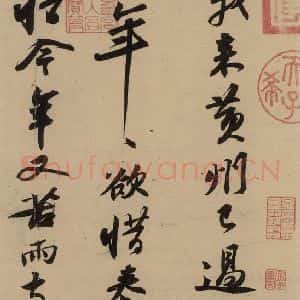 我来黄州已過
年、欲惜春
惜今年又苦雨
Shufawang.CN